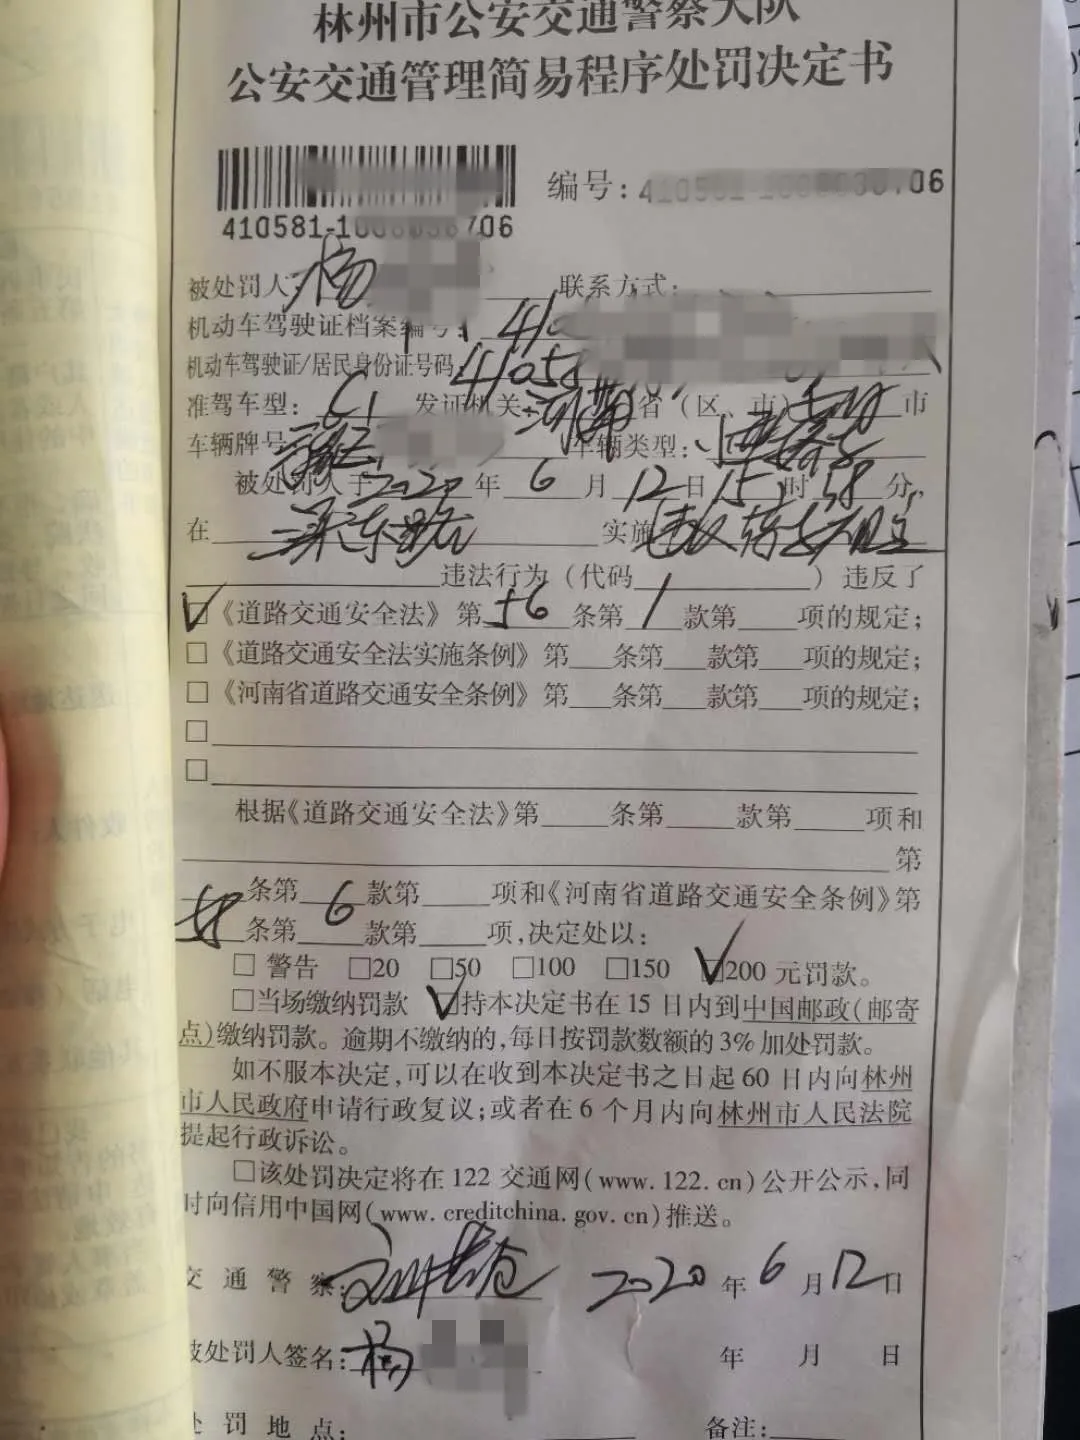 林州市公安交通警察大队
公安交通管理简易程序处罚决定书
编号:410581-1 06
410581-1 706
被处罚人:杨 联系方式:
机动车驾驶证档案编号: 410
机动车驾驶证/居民身份证号码: 4105
准驾车型: C1 发证机关:河南省(区、市) 市
车辆牌号 车辆类型:
被处罚人于2020年6月12日15时58分,
在 东 实施
违法行为(代码 )违反了
☑《道路交通安全法》第56条第1款第 项的规定;
□《道路交通安全法实施条例》第 条第 款第 项的规定;
□《河南省道路交通安全条例》第 条第 款第 项的规定;
□
□
根据《道路交通安全法》第 条第 款第 项和
第
条第 款第 项和《河南省道路交通安全条例》第
条第6款第 项,决定处以:
□警告 □20 □50 □100 □150 ☑200元罚款。
□当场缴纳罚款 ☑持本决定书在15日内到中国邮政(邮寄
点)缴纳罚款。逾期不缴纳的,每日按罚款数额的3%加处罚款。
如不服本决定,可以在收到本决定书之日起60日内向林州
市人民政府申请行政复议;或者在6个月内向林州市人民法院
提起行政诉讼。
□该处罚决定将在122交通网(www.122.cn)公开公示,同
时向信用中国网(www.creditchina.gov.cn)推送。
交通警察: 2020年6月12日
被处罚人签名:杨 年 月 日
处罚地点: 备注: